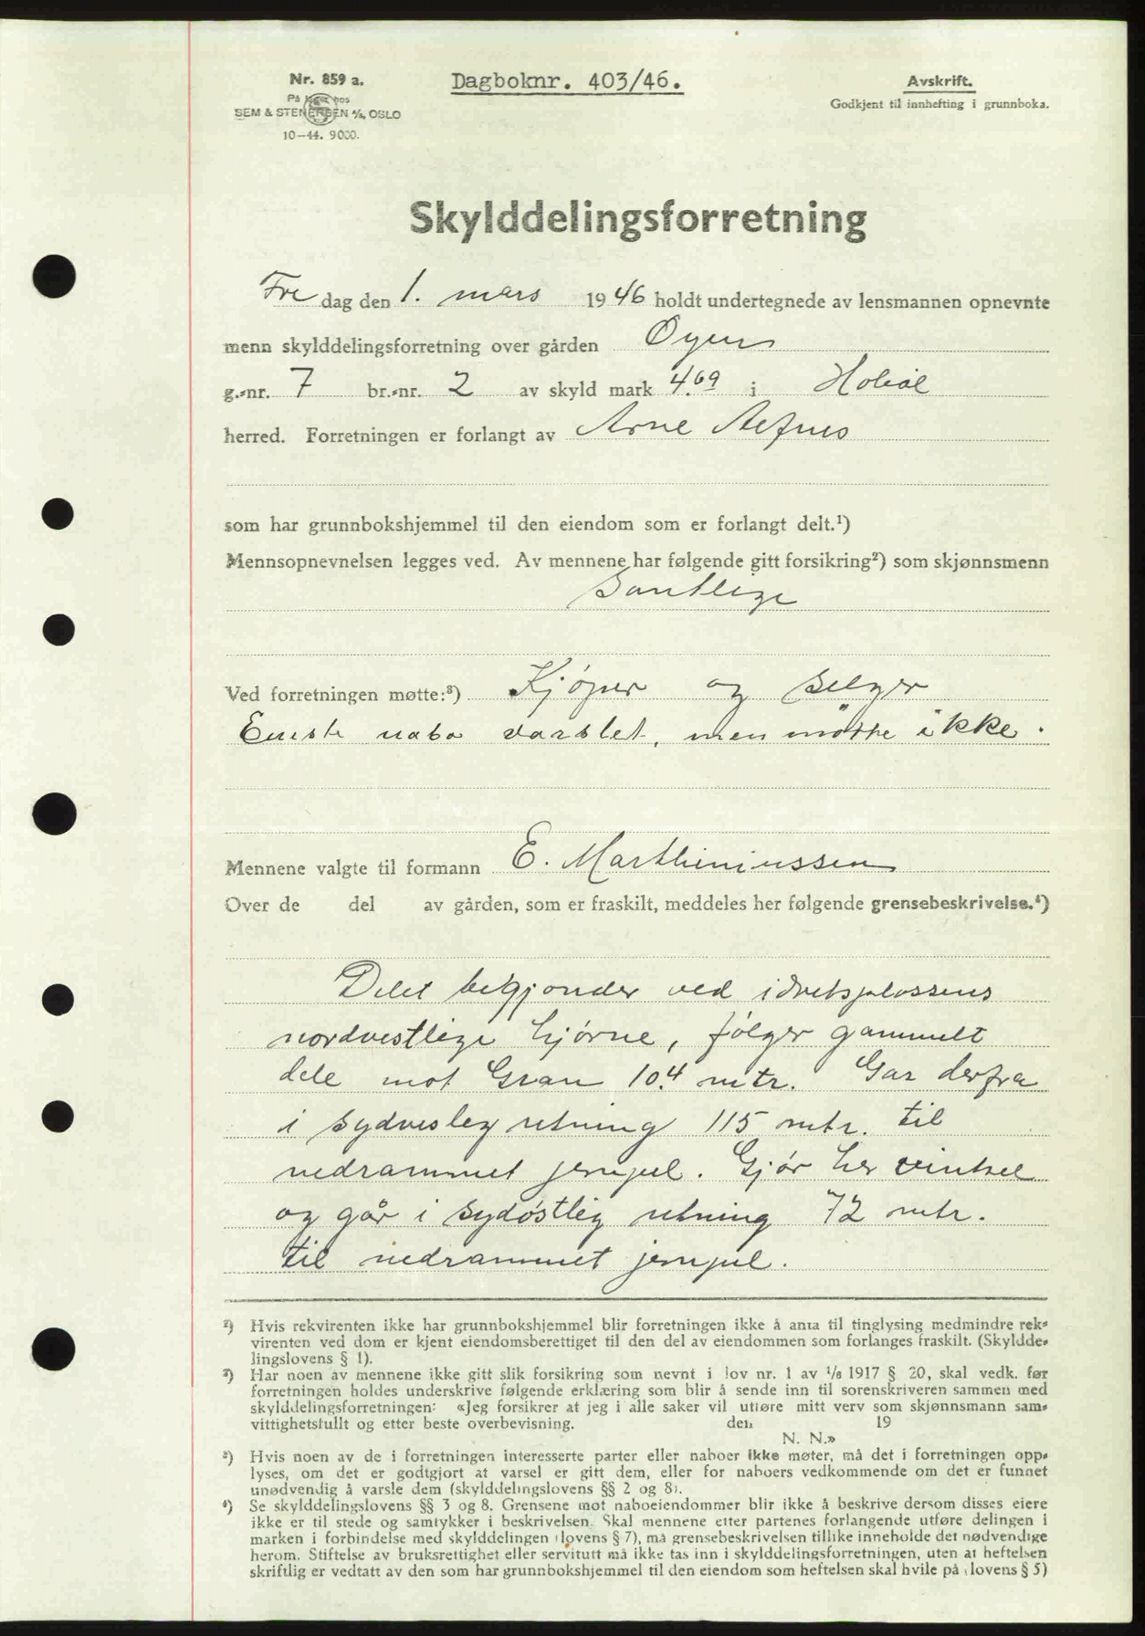 Nr. 859 a.
På lager hos
SEM & STENERSEN A/S, OSLO
10-44. 9000.
Dagboknr. 403/46.
Avskrift.
Godkjent til innhefting i grunnboka.
Skylddelingsforretning
Fre dag den 1. mars 1946 holdt undertegnede av lensmannen opnevnte
menn skylddelingsforretning over gården Øyen
g.-nr. 7 br.-nr. 2 av skyld mark 4.69 i Hobøl
herred. Forretningen er forlangt av Arne
som har grunnbokshjemmel til den eiendom som er forlangt delt.¹)
Mennsopnevnelsen legges ved. Av mennene har følgende gitt forsikring²) som skjønnsmenn
Samtlige
Ved forretningen møtte:³) Kjøper og selger
Eneste nabo varslet, men møtte ikke.
Mennene valgte til formann E. Marthiniussen
Over de del av gården, som er fraskilt, meddeles her følgende grensebeskrivelse.⁴)
Delet begjynder ved idretsplassens
nordvestlige hjørne, følger gammelt
dele mot Gran 104 mtr. Går derfra
i sydvesleg retning 115 mtr. til
nedrammet jernpel. Gjør her vinkel
og går i sydøstleg retning 72 mtr.
til nedrammet jernpel.
²) Hvis rekvirenten ikke har grunnbokshjemmel blir forretningen ikke å anta til tinglysing medmindre rek-
virenten ved dom er kjent eiendomsberettiget til den del av eiendommen som forlanges fraskilt. (Skyldde-
lingslovens § 1).
²) Har noen av mennene ikke gitt slik forsikring som nevnt i lov nr. 1 av 1/6 1917 § 20, skal vedk. før
forretningen holdes underskrive følgende erklæring som blir å sende inn til sorenskriveren sammen med
skylddelingsforretningen: «Jeg forsikrer at jeg i alle saker vil utføre mitt verv som skjønnsmann sam-
vittighetsfullt og etter beste overbevisning. den 19
N. N.»
³) Hvis noen av de i forretningen interesserte parter eller naboer ikke møter, må det i forretningen opp-
lyses, om det er godtgjort at varsel er gitt dem, eller for naboers vedkommende om det er funnet
unødvendig å varsle dem (skylddelingslovens §§ 2 og 8).
⁴) Se skylddelingslovens §§ 3 og 8. Grensene mot naboeiendommer blir ikke å beskrive dersom disses eiere
ikke er til stede og samtykker i beskrivelsen. Skal mennene etter partenes forlangende utføre delingen i
marken i forbindelse med skylddelingen (lovens § 7), må grensebeskrivelsen tillike inneholde det nødvendige
herom. Stiftelse av bruksrettighet eller servitutt må ikke tas inn i skylddelingsforretningen, uten at heftelsen
skriftlig er vedtatt av den som har grunnbokshjemmel til den eiendom som heftelsen skal hvile på (lovens § 5)